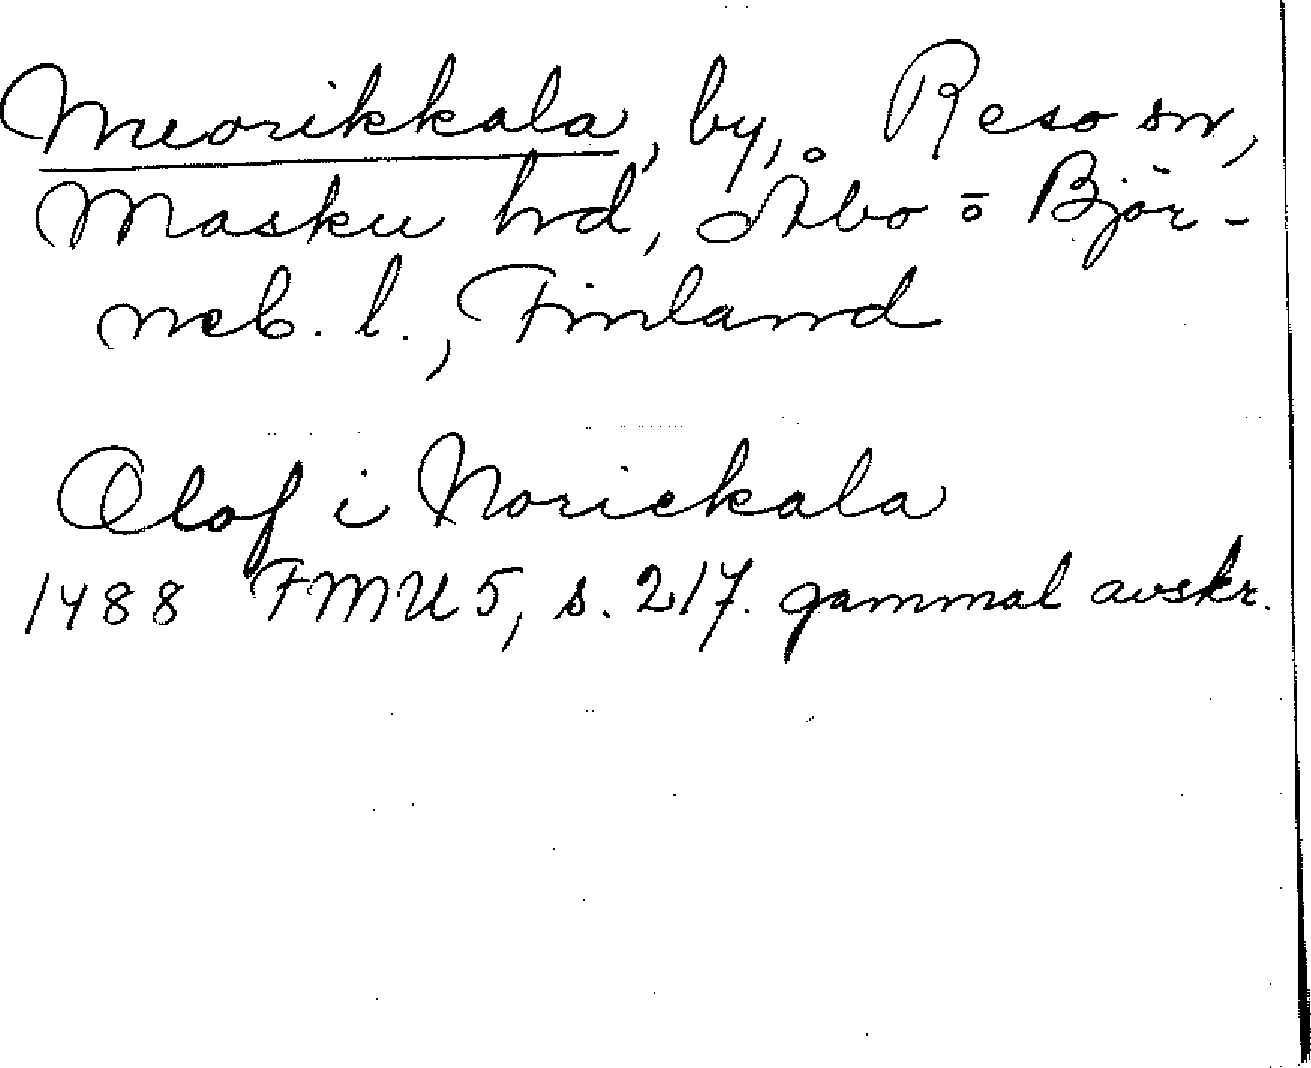 Nuorikkala, by, Reso sn,
Masku hd, Åbo ō Björ-
neb. l., Finland
Olof i Norickala
1488 FMU 5, s. 217. gammal avskr.